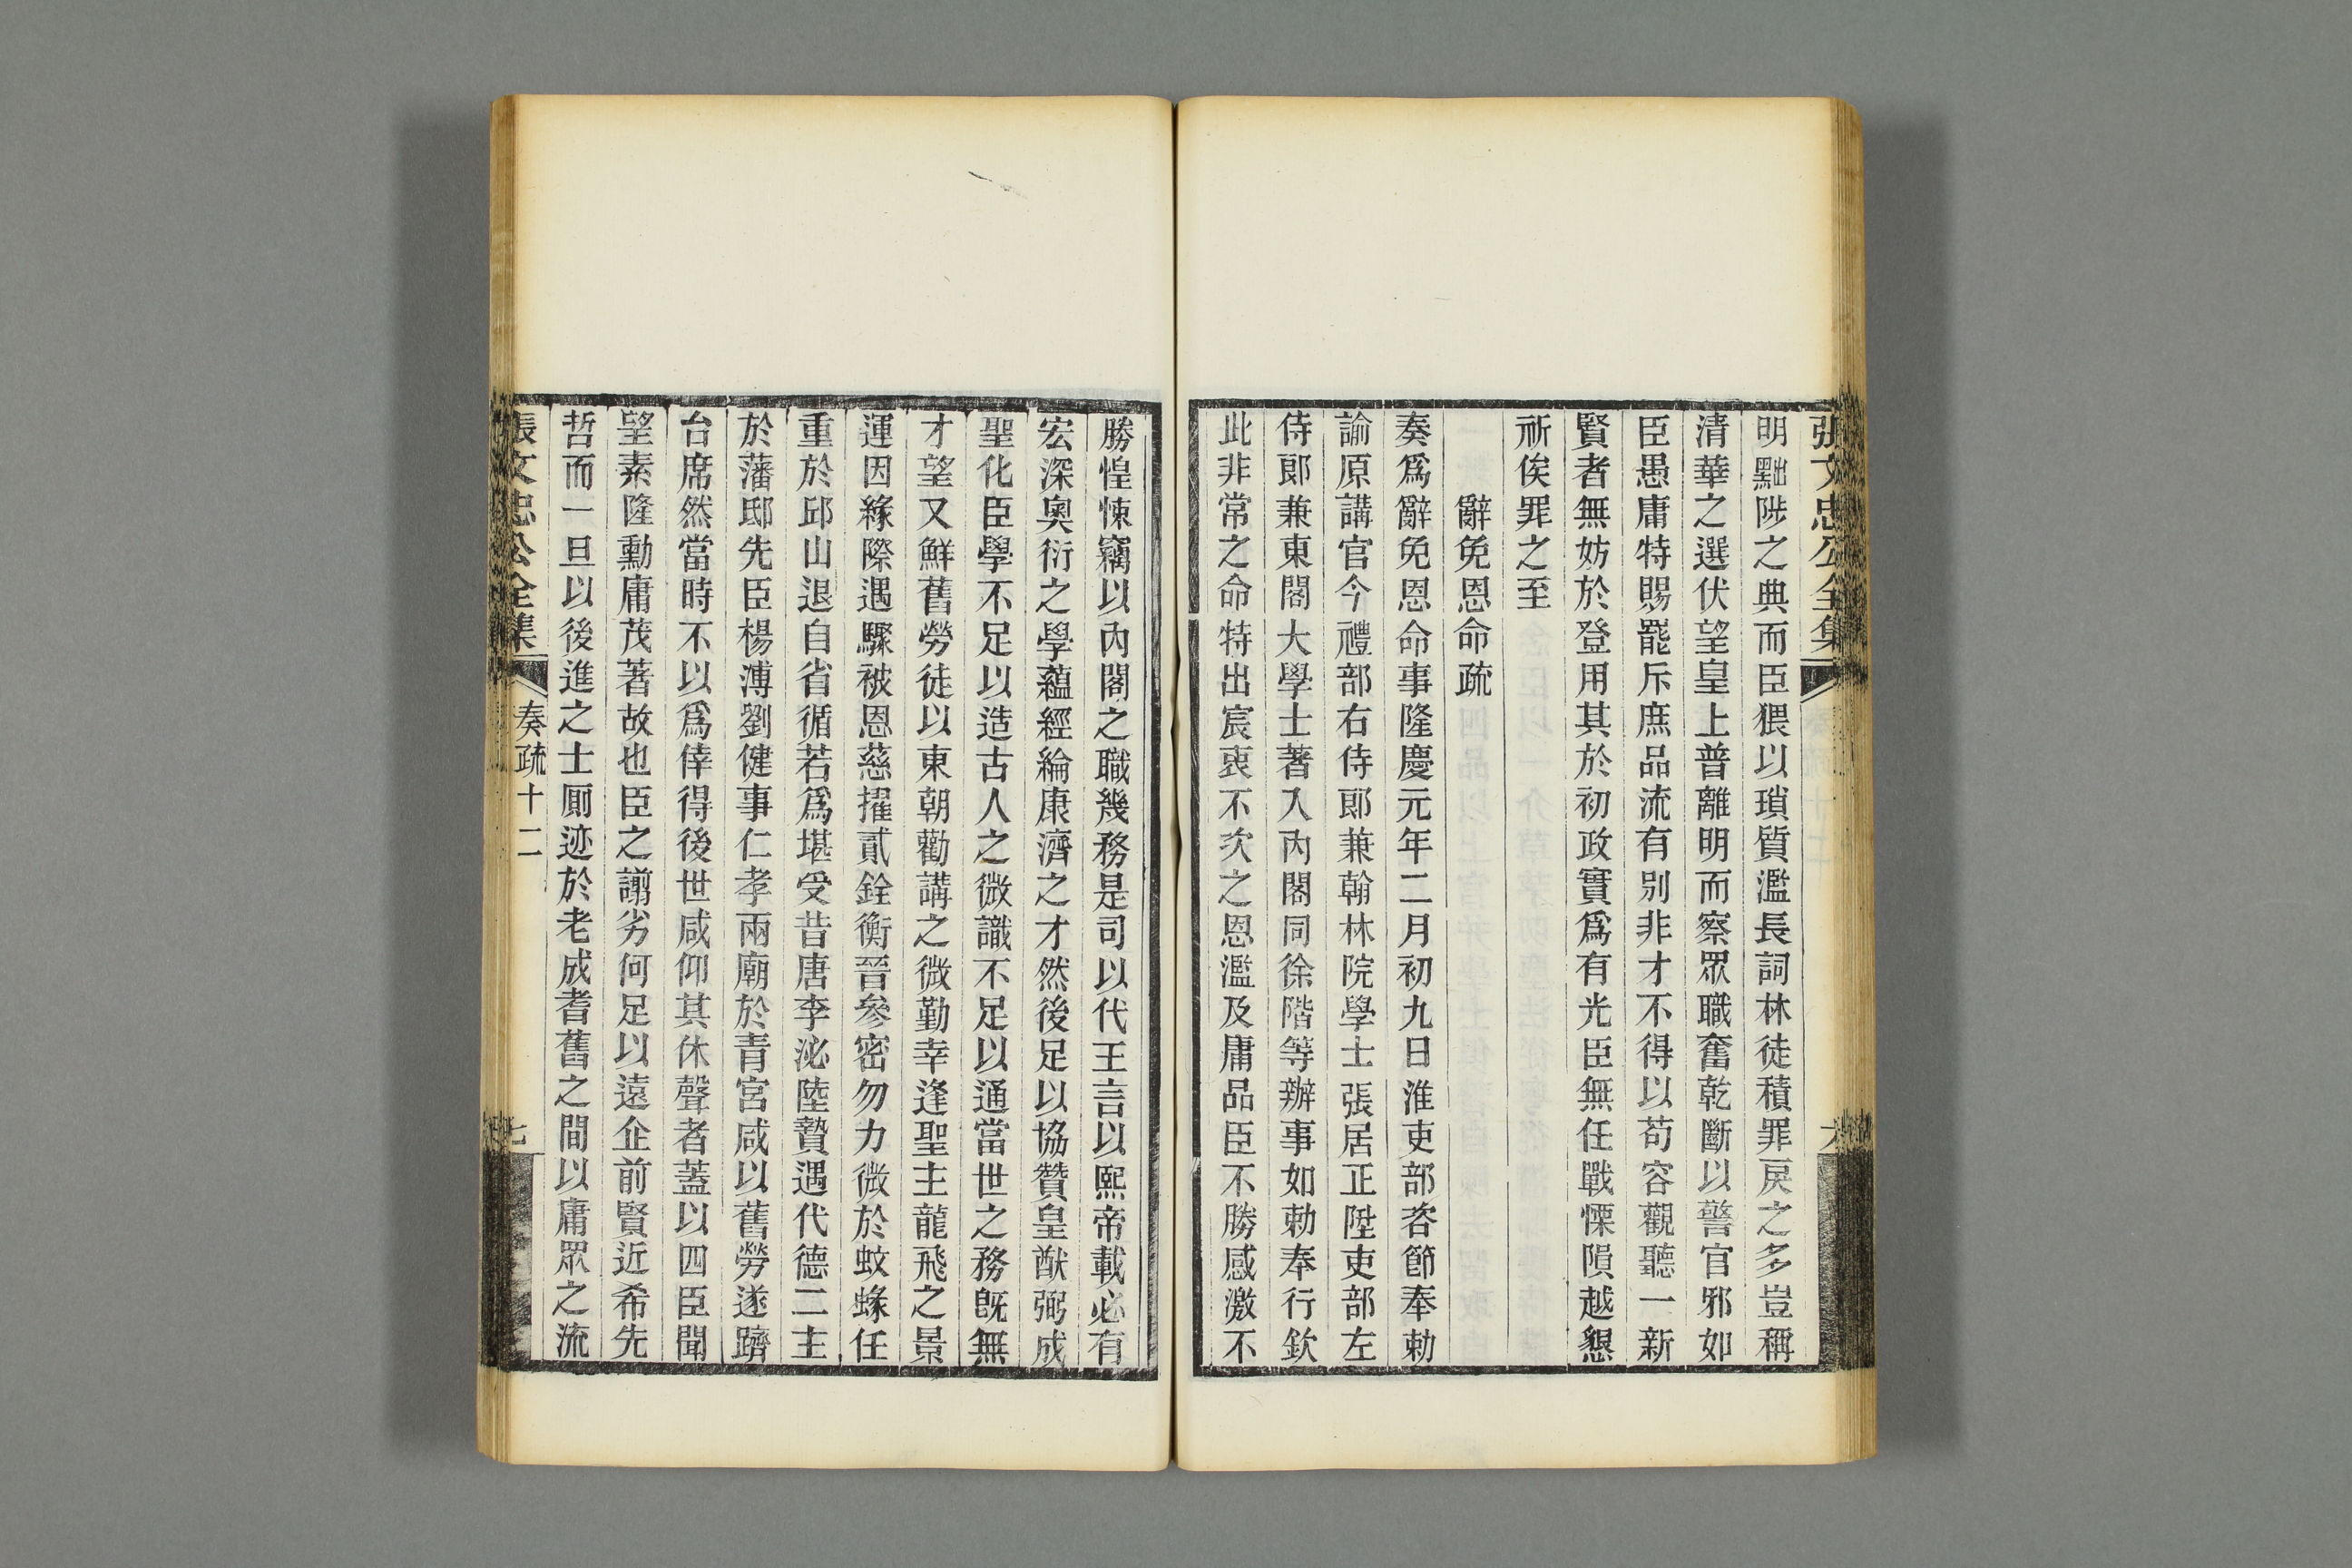 張文忠公全集
六
明黜陟之典而臣猥以瑣質濫長詞林徒積罪戾之多豈稱
清華之選伏望皇上普離明而察眾職奮乾斷以警官邪如
臣愚庸特賜罷斥庶品流有別非才不得以苟容觀聽一新
賢者無妨於登用其於初政實爲有光臣無任戰慄隕越懇
祈俟罪之至
辭免恩命疏
奏爲辭免恩命事隆慶元年二月初九日淮吏部咨節奉勅
諭原講官今禮部右侍郎兼翰林院學士張居正陞吏部左
侍郎兼東閣大學士著入內閣同徐階等辦事如勅奉行欽
此非常之命特出宸衷不次之恩濫及庸品臣不勝感激不
勝惶悚竊以內閣之職幾務是司以代王言以熙帝載必有
宏深奧衍之學蘊經綸康濟之才然後足以協贊皇猷弼成
聖化臣學不足以造古人之微識不足以通當世之務旣無
才望又鮮舊勞徒以東朝勸講之微勤幸逢聖主龍飛之景
運因緣際遇驟被恩慈擢貳銓衡晉參密勿力微於蚊蝝任
重於邱山退自省循若爲堪受昔唐李泌陸贄遇代德二主
於藩邸先臣楊溥劉健事仁孝兩廟於青宮咸以舊勞遂躋
台席然當時不以爲倖得後世咸仰其休聲者蓋以四臣聞
望素隆勳庸茂著故也臣之謭劣何足以遠企前賢近希先
哲而一旦以後進之士厠迹於老成耆舊之間以庸眾之流
張文忠公全集
奏疏十二
七